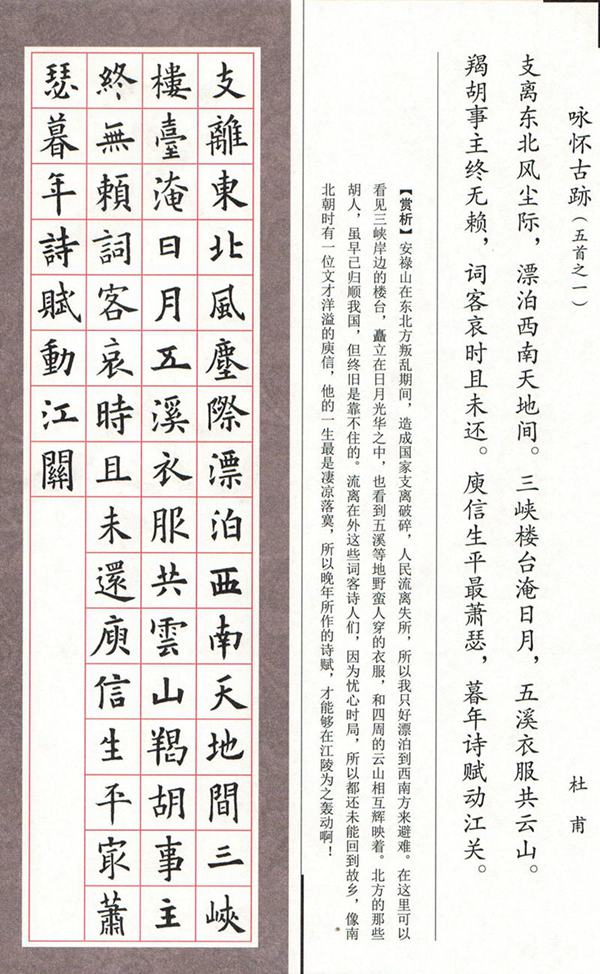 咏怀古跡（五首之一）
杜甫
支离东北风尘际，漂泊西南天地间。三峡楼台淹日月，五溪衣服共云山。
羯胡事主终无赖，词客哀时且未还。庾信生平最萧瑟，暮年诗赋动江关。
【赏析】安禄山在东北方叛乱期间，造成国家支离破碎，人民流离失所，所以我只好漂泊到西南方来避难。在这里可以
看见三峡岸边的楼台，矗立在日月光华之中，也看到五溪等地野蛮人穿的衣服，和四周的云山相互辉映着。北方的那些
胡人，虽早已归顺我国，但终旧是靠不住的。流离在外这些词客诗人们，因为忧心时局，所以都还未能回到故乡，像南
北朝时有一位文才洋溢的庾信，他的一生最是凄凉落寞，所以晚年所作的诗赋，才能够在江陵为之轰动啊！
支離東北風塵際漂泊西南天地間三峽
樓臺淹日月五溪衣服共雲山羯胡事主
終無賴詞客哀時且未還庾信生平冣蕭
瑟暮年詩賦動江關